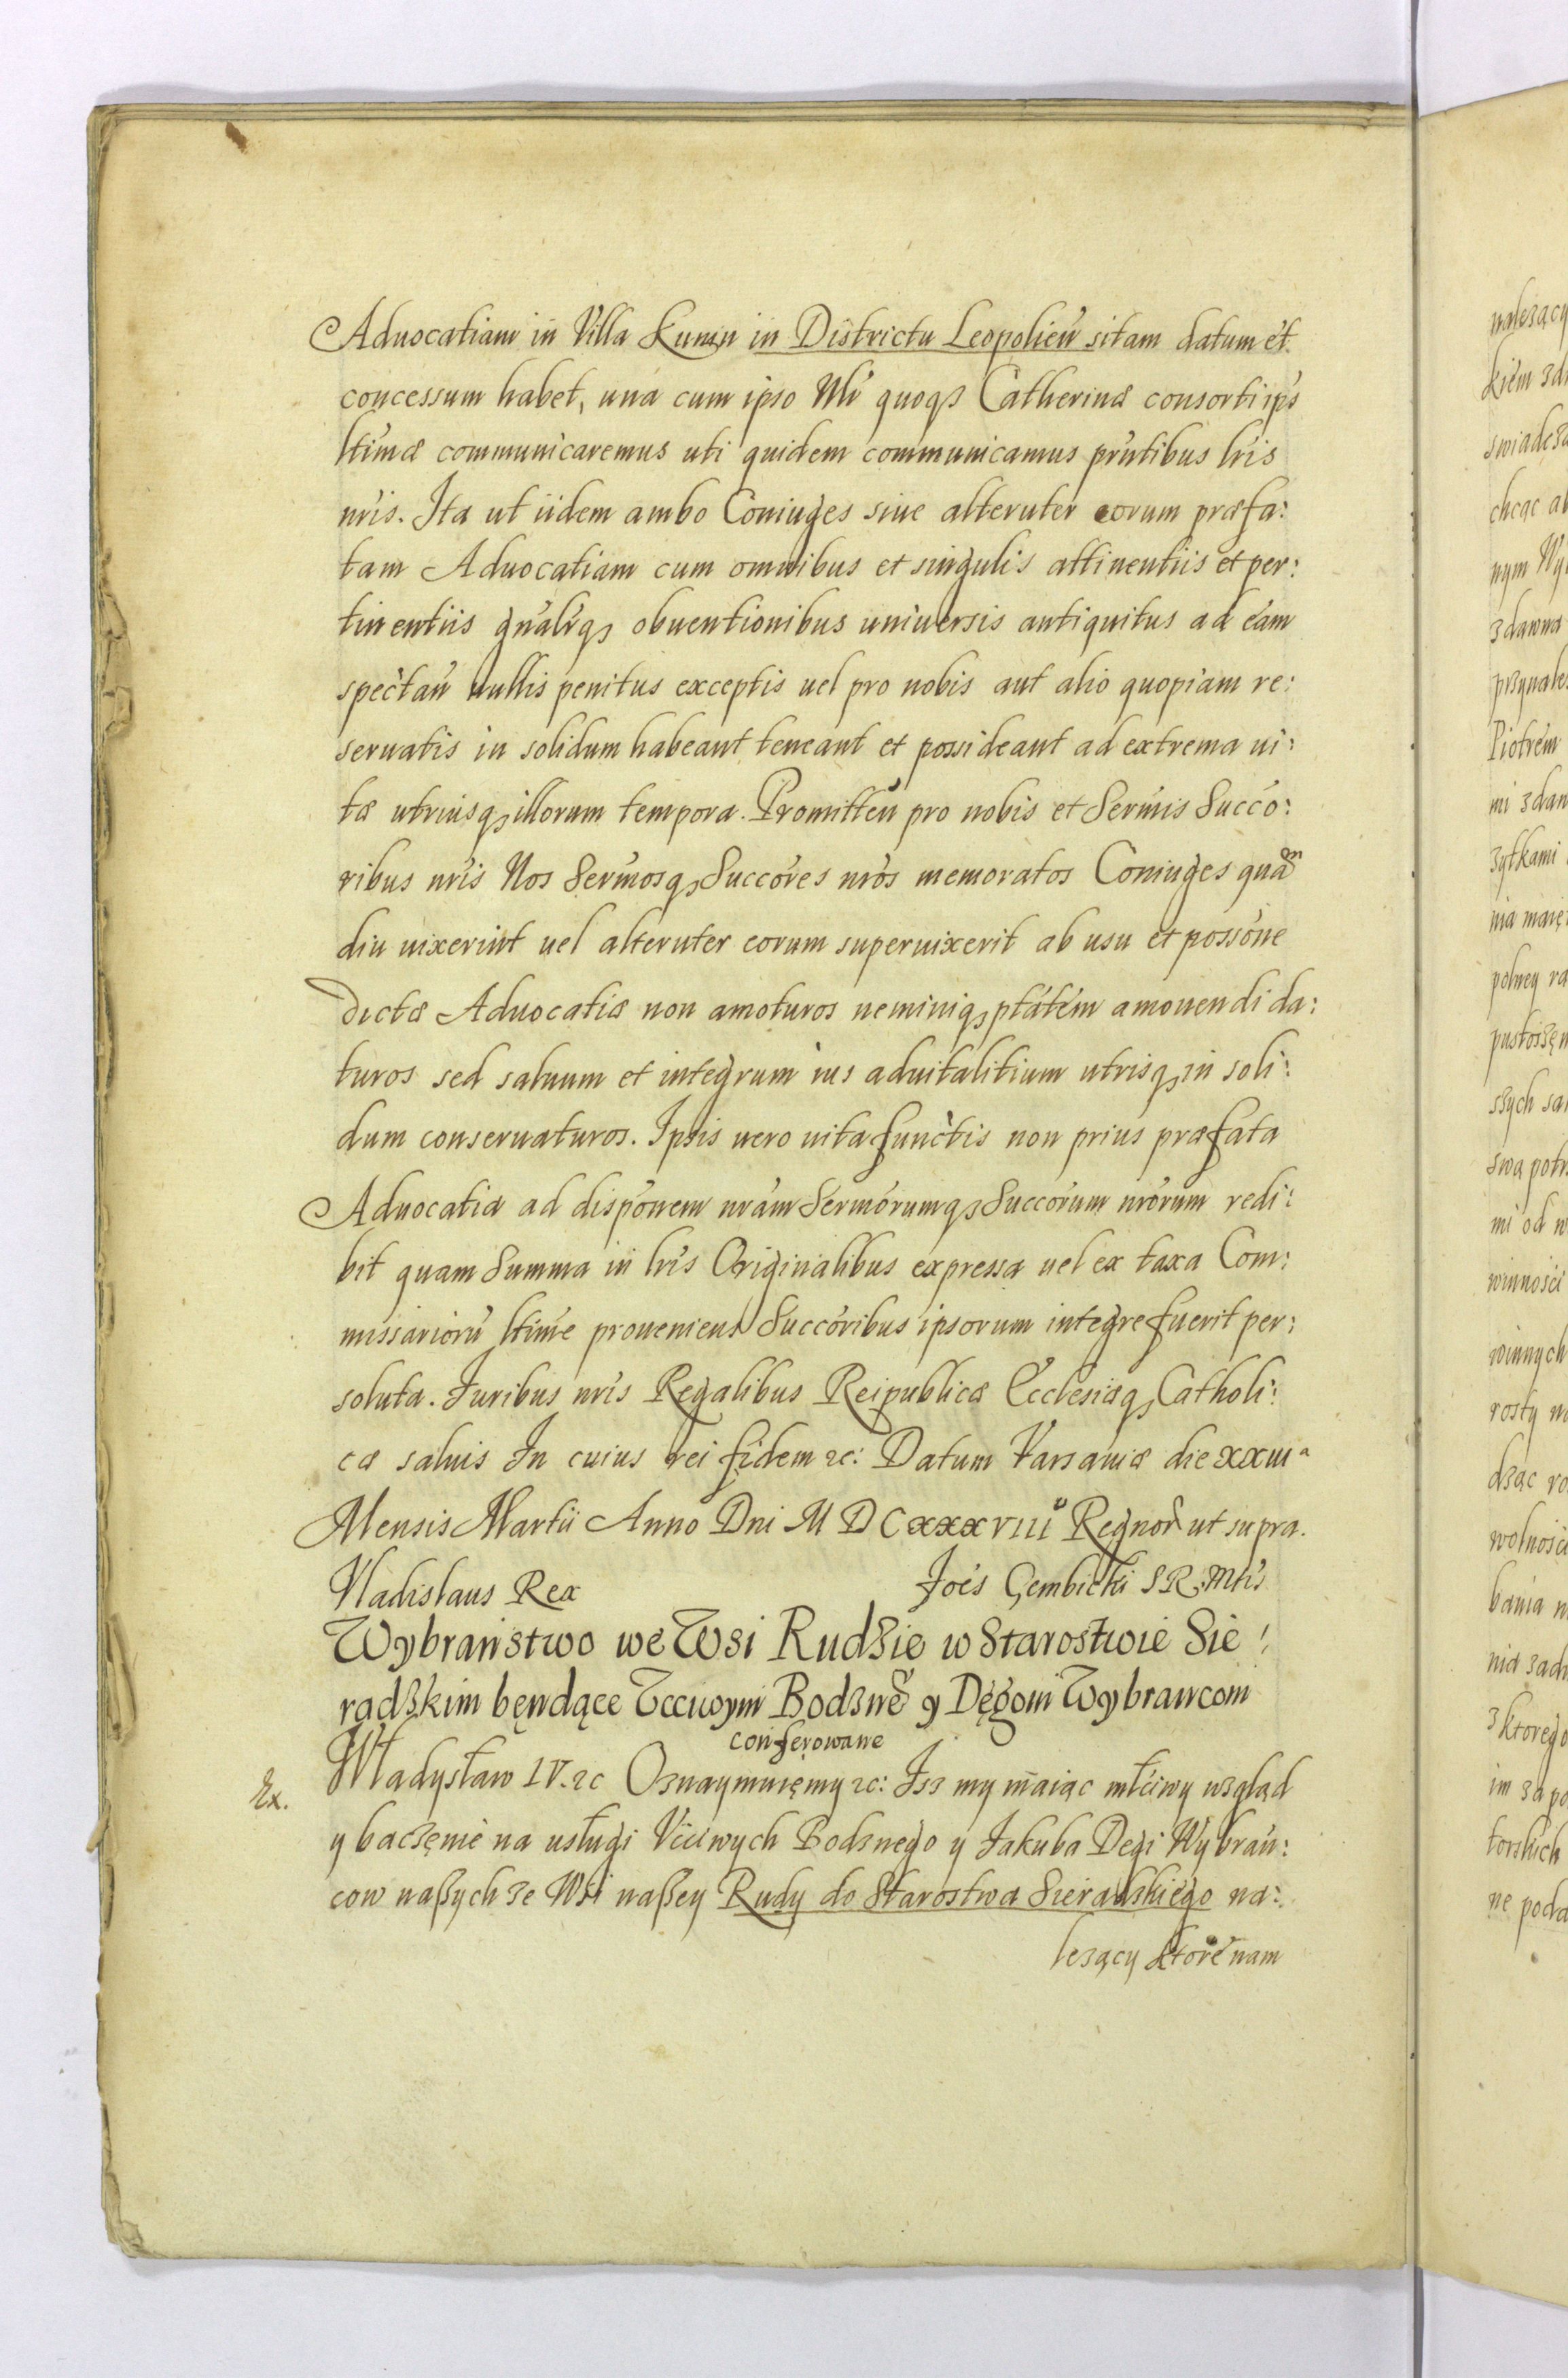 Aduocatiam in Villa Kunin in Districtu Leopolień sitam datum et
concessum habet, una cum ipso Mlī quoqꝫ Catherinæ consorti ip̄s
ltīmæ communicaremus uti quidem communicamus prn̄tibus lr̄is
nr̄is. Ita ut iidem ambo Coniuges siue alteruter eorum præfa:
tam Aduocatiam cum omnibus et singulis attinentiis et per:
tinentiis gnāl̄rqꝫ obuentionibus uniuersis antiquitus ad eam
spectań nullis penitus exceptis uel pro nobis aut alio quopiam re:
seruatis in solidum habeant teneant et possideant ad extrema ui:
tæ utriusqꝫ illorum tempora. Promitteń pro nobis et Serm̄is Succō:
ribus nr̄is Nos Serm̄osqꝫ Succōres nr̄os memoratos Coniuges quam
diu uixerint uel alteruter eorum superuixerit ab usu et possōne
dictæ Aduocatiæ non amoturos neminiqꝫ ptātem amouendi da:
turos sed saluum et integrum ius aduitalitium utrisqꝫ in soli:
dum conseruaturos. Ipsis uero uita functis non prius præfata
Aduocatia ad dispōnem nr̄am Serm̄orumqꝫ Succōrum nr̄orum redi:
bit quam Summa in lr̄is Originalibus expressa uel ex taxa Com:
missariorū ltīme proueniens Succōribus ipsorum integre fuerit per:
soluta. Iuribus nr̄is Regalibus Reipublicæ Ecclesiæqꝫ Catholi:
cæ saluis In cuius rei fidem ꝛc: Datum Varsauiæ die XXIIIa
Mensis Martii Anno Dni M D CXXXVIIIo Regnor̄ ut supra.
Vladislaus Rex Joēs Gembicki S R. Mtis
Wybraństwo we Wsi Rudzie w Starostwie Sie:
radzkim będące Vcciwym Bodznē y Dęgowi Wybrancom
conferowane
Ex. Władysław IV. ꝛc Oznaymuięmy ꝛc: Isz my maiąc młćiwy wzgląd
y baczęnie na usługi Vććiwych Bodznego y Jakuba Degi Wybrań:
cow naßych ze Wsi naßey Rudy do Starostwa Sieradzkiego na:
lezący ktore nam